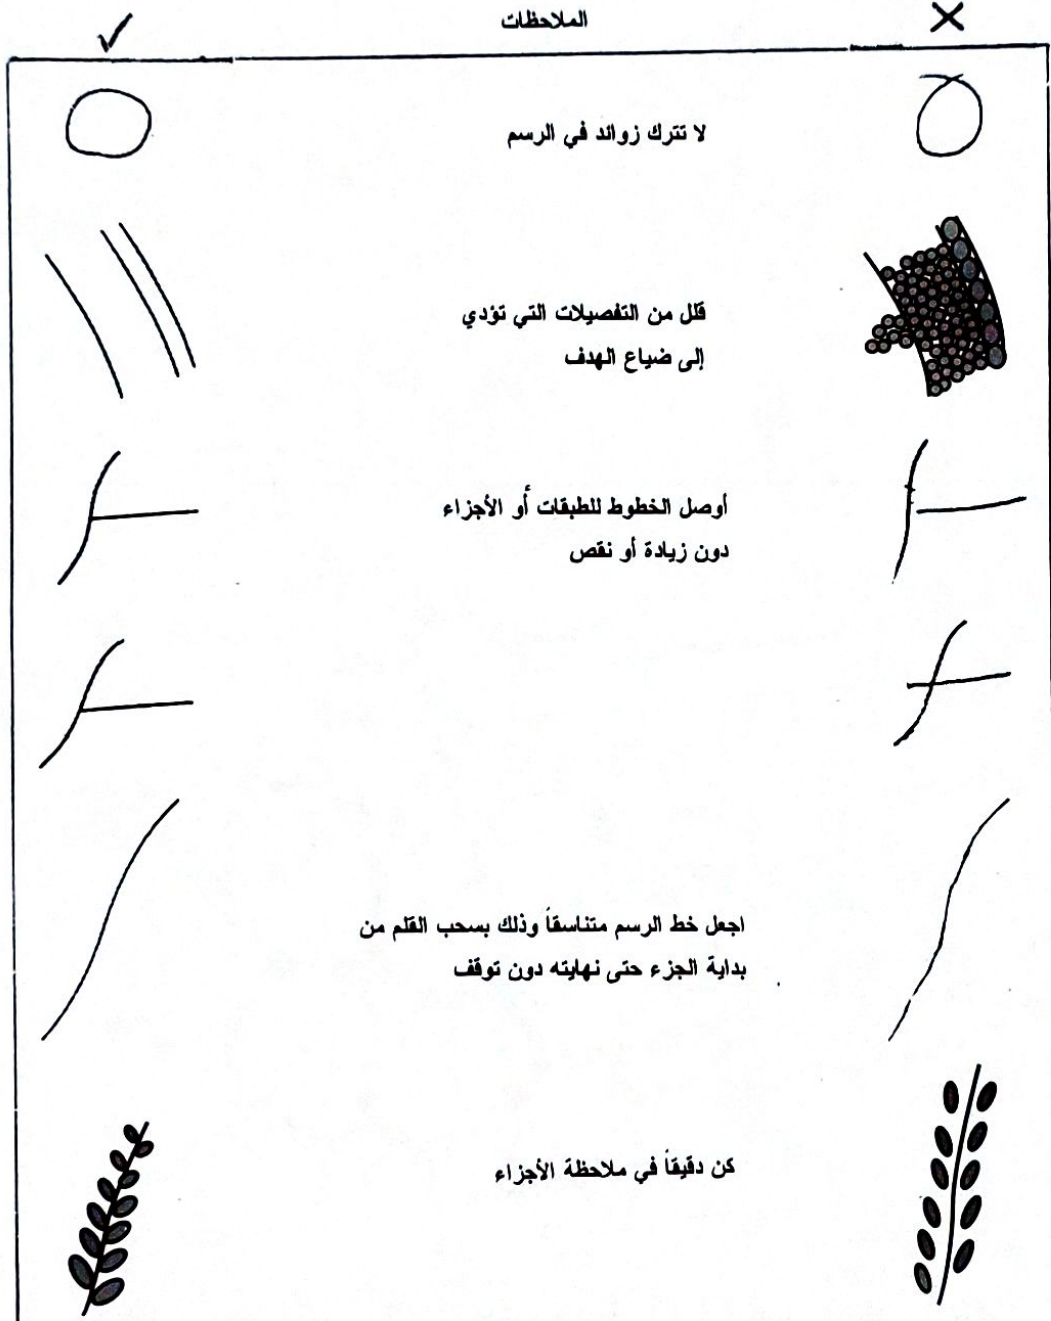 الملاحظات
لا تترك زوائد في الرسم
قلل من التفصيلات التي تؤدي
إلى ضياع الهدف
أوصل الخطوط للطبقات أو الأجزاء
دون زيادة أو نقص
اجعل خط الرسم متناسقاً وذلك بسحب القلم من
بداية الجزء حتى نهايته دون توقف
كن دقيقاً في ملاحظة الأجزاء